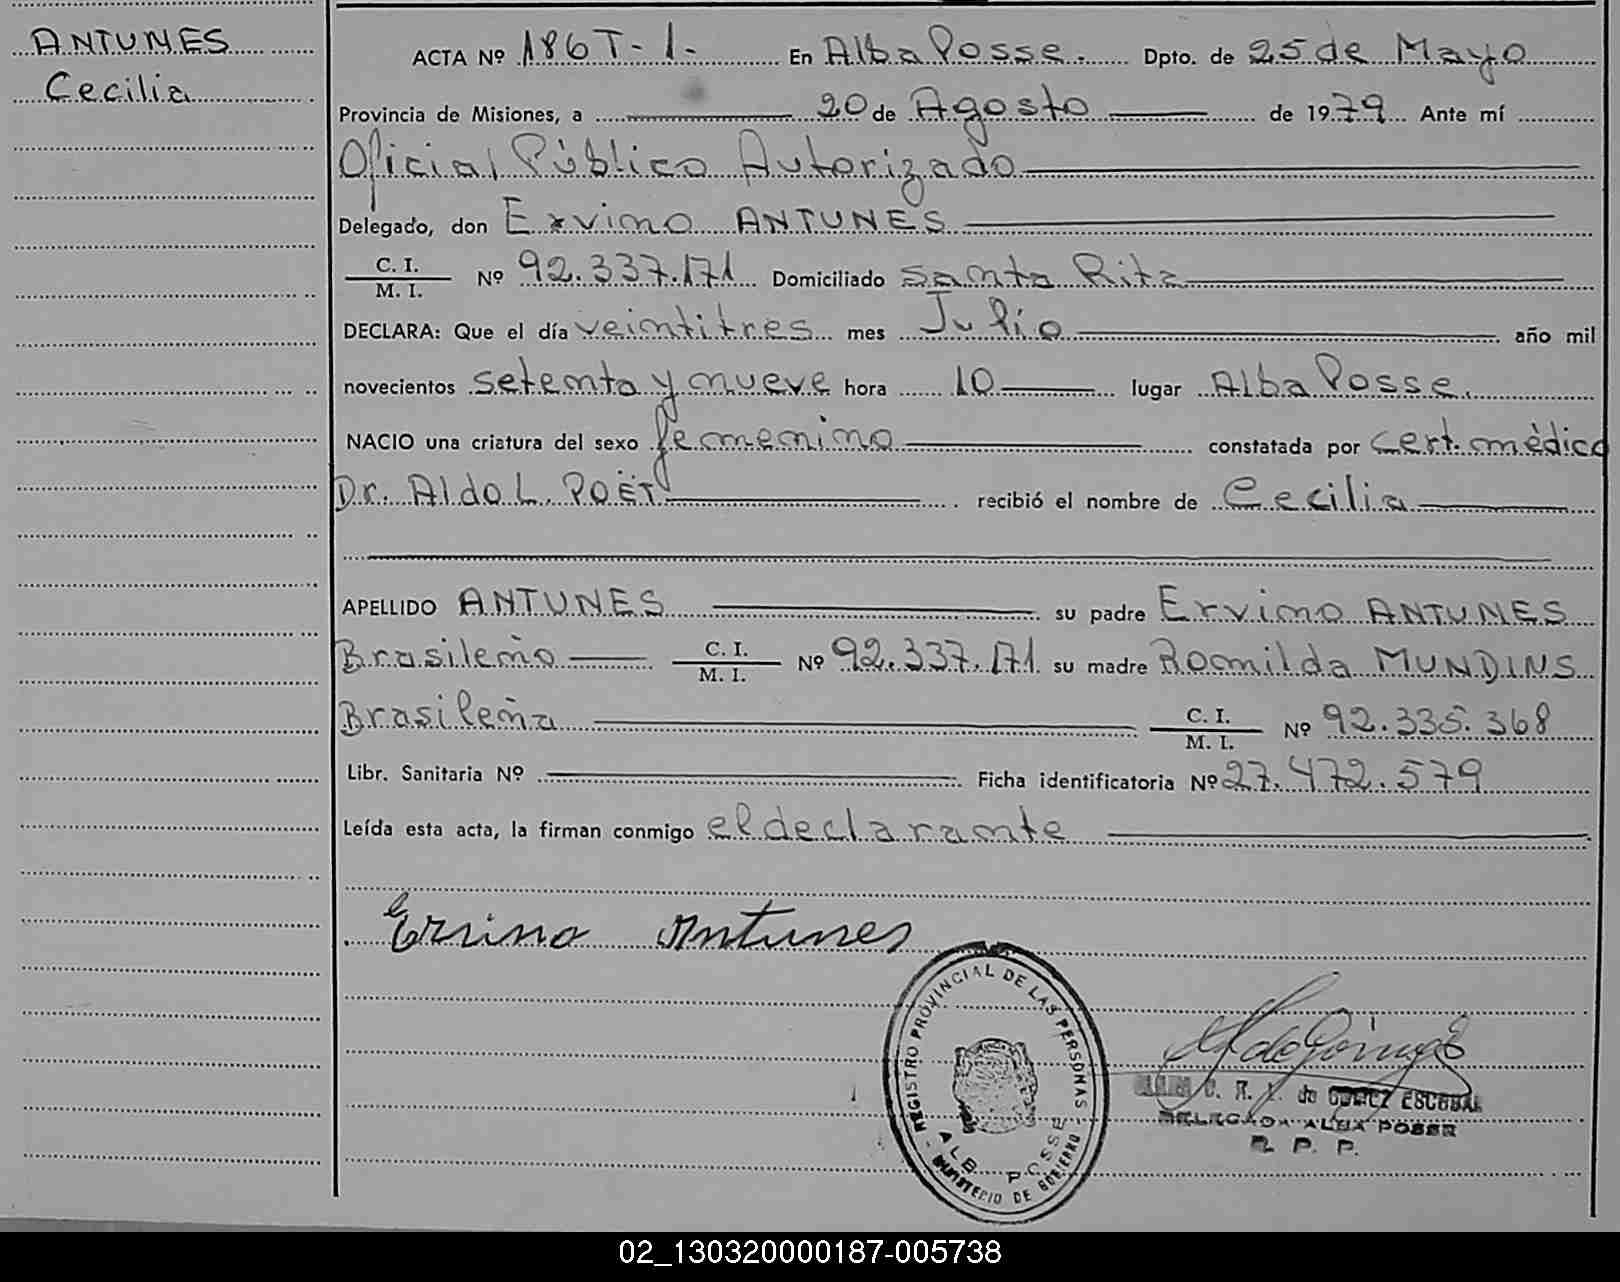 ANTUNES
Cecilia
ACTA Nº 186 T-1- En Alba Posse. Dpto. de 25 de Mayo
Provincia de Misiones, a 20 de Agosto de 1979 Ante mí
Oficial Público Autorizado
Delegado, don Ervino ANTUNES
C. I.
M. I. Nº 92.337.171 Domiciliado Santa Rita
DECLARA: Que el día veintitres mes Julio año mil
novecientos setenta y nueve hora 10 lugar Alba Posse.
NACIO una criatura del sexo femenino constatada por cert. médico
Dr. Aldo L. POËT recibió el nombre de Cecilia
APELLIDO ANTUNES su padre Ervino ANTUNES
Brasileño C. I.
M. I. Nº 92.337.171 su madre Romilda MUNDINS
Brasileña C. I.
M. I. Nº 92.335.368
Libr. Sanitaria Nº Ficha identificatoria Nº 27.472.579
Leída esta acta, la firman conmigo el declarante
Ervino Antunes
REGISTRO PROVINCIAL DE LAS PERSONAS
ALB POSSE
MINISTERIO DE GOBIERNO
de GOMEZ ESCOBAR
DELEGADA ALBA POSSE
R. P. P.
02_130320000187-005738